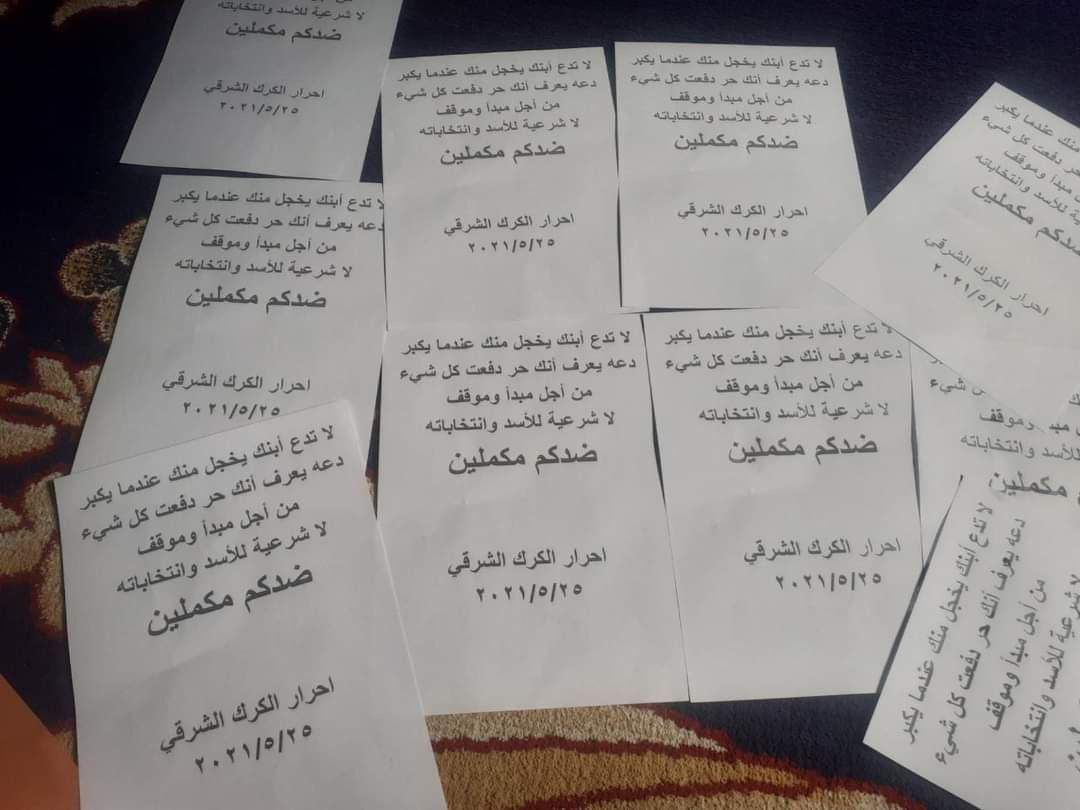 لا شرعية للأسد وانتخاباته
ضدكم مكملين
احرار الكرك الشرقي
٢٠٢١/٥/٢٥
لا تدع أبنك يخجل منك عندما يكبر
دعه يعرف أنك حر دفعت كل شيء
من أجل مبدأ وموقف
لا شرعية للأسد وانتخاباته
ضدكم مكملين
احرار الكرك الشرقي
٢٠٢١/٥/٢٥
لا تدع أبنك يخجل منك عندما يكبر
دعه يعرف أنك حر دفعت كل شيء
من أجل مبدأ وموقف
لا شرعية للأسد وانتخاباته
ضدكم مكملين
احرار الكرك الشرقي
٢٠٢١/٥/٢٥
منك عندما يكبر
حر دفعت كل شيء
مبدأ وموقف
للأسد وانتخاباته
ضدكم مكملين
احرار الكرك الشرقي
٢٠٢١/٥/٢٥
لا تدع أبنك يخجل منك عندما يكبر
دعه يعرف أنك حر دفعت كل شيء
من أجل مبدأ وموقف
لا شرعية للأسد وانتخاباته
ضدكم مكملين
احرار الكرك الشرقي
٢٠٢١/٥/٢٥
لا تدع أبنك يخجل منك عندما يكبر
دعه يعرف أنك حر دفعت كل شيء
من أجل مبدأ وموقف
لا شرعية للأسد وانتخاباته
ضدكم مكملين
احرار الكرك الشرقي
٢٠٢١/٥/٢٥
لا تدع أبنك يخجل منك عندما يكبر
دعه يعرف أنك حر دفعت كل شيء
من أجل مبدأ وموقف
لا شرعية للأسد وانتخاباته
ضدكم مكملين
احرار الكرك الشرقي
٢٠٢١/٥/٢٥
شيء
وموقف
للأسد وانتخاباته
مكملين
لا تدع أبنك يخجل منك عندما يكبر
دعه يعرف أنك حر دفعت كل شيء
من أجل مبدأ وموقف
لا شرعية للأسد وانتخاباته
ضدكم مكملين
احرار الكرك الشرقي
٢٠٢١/٥/٢٥
لا تدع أبنك يخجل منك عندما يكبر
دعه يعرف أنك حر دفعت كل شيء
من أجل مبدأ وموقف
لا شرعية للأسد وانتخاباته